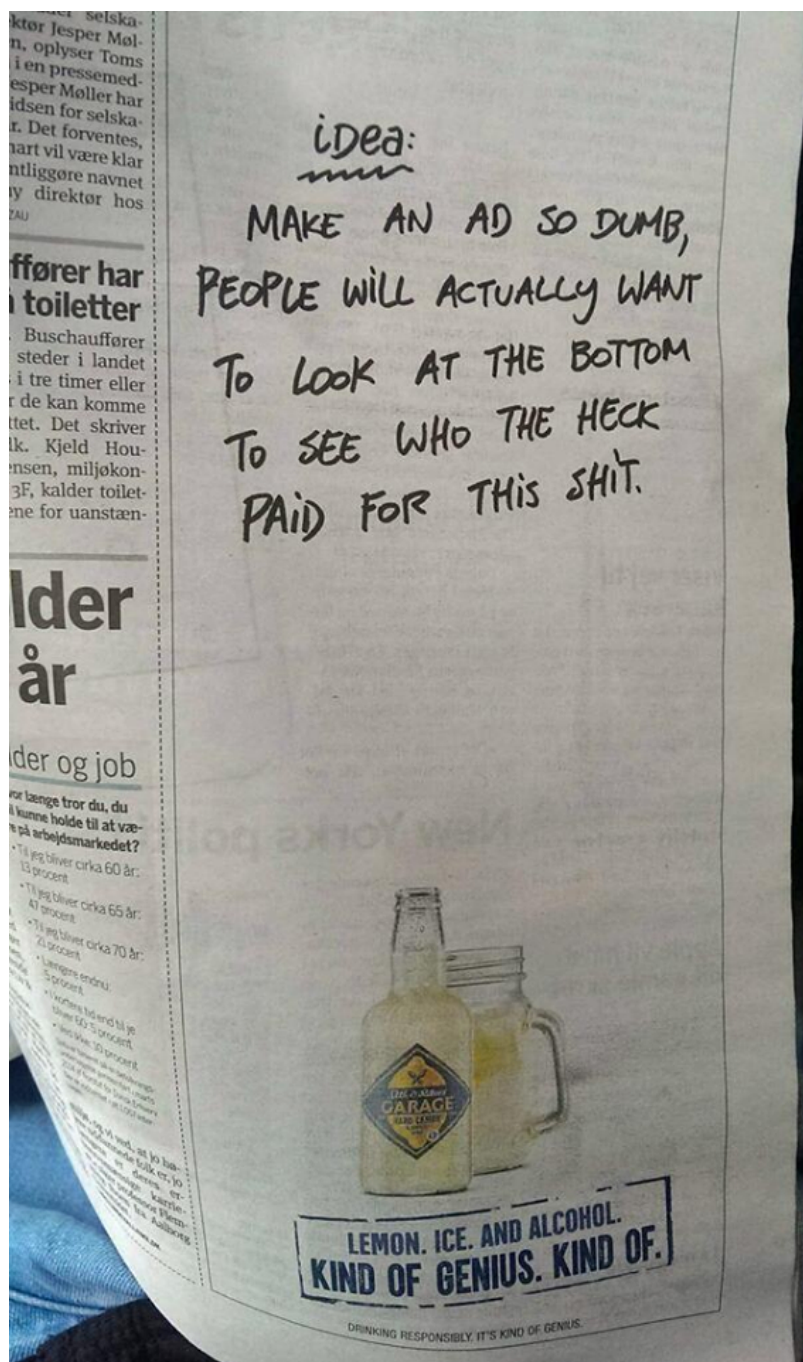 selska-
ktør Jesper Møl-
n, oplyser Toms
i en pressemed-
esper Møller har
idsen for selska-
r. Det forventes,
nart vil være klar
ntliggøre navnet
ny direktør hos
ZAU
ffører har
toiletter
Buschauffører
steder i landet
i tre timer eller
r de kan komme
ttet. Det skriver
lk. Kjeld Hou-
ensen, miljøkon-
3F, kalder toilet-
ene for uanstæn-
lder
år
der og job
vor længe tror du, du
kunne holde til at væ-
e på arbejdsmarkedet?
• Til jeg bliver cirka 60 år:
13 procent
• Til jeg bliver cirka 65 år:
47 procent
• Til jeg bliver cirka 70 år:
21 procent
• Længere endnu:
5 procent
• I kortere tid end til je
bliver 60: 5 procent
• Ved ikke: 10 procent
iDea:
MAKE AN AD SO DUMB,
PEOPLE WILL ACTUALLY WANT
TO LOOK AT THE BOTTOM
TO SEE WHO THE HECK
PAID FOR THIS SHIT.
GARAGE
HARD
LEMON. ICE. AND ALCOHOL.
KIND OF GENIUS. KIND OF.
DRINKING RESPONSIBLY. IT'S KIND OF GENIUS.